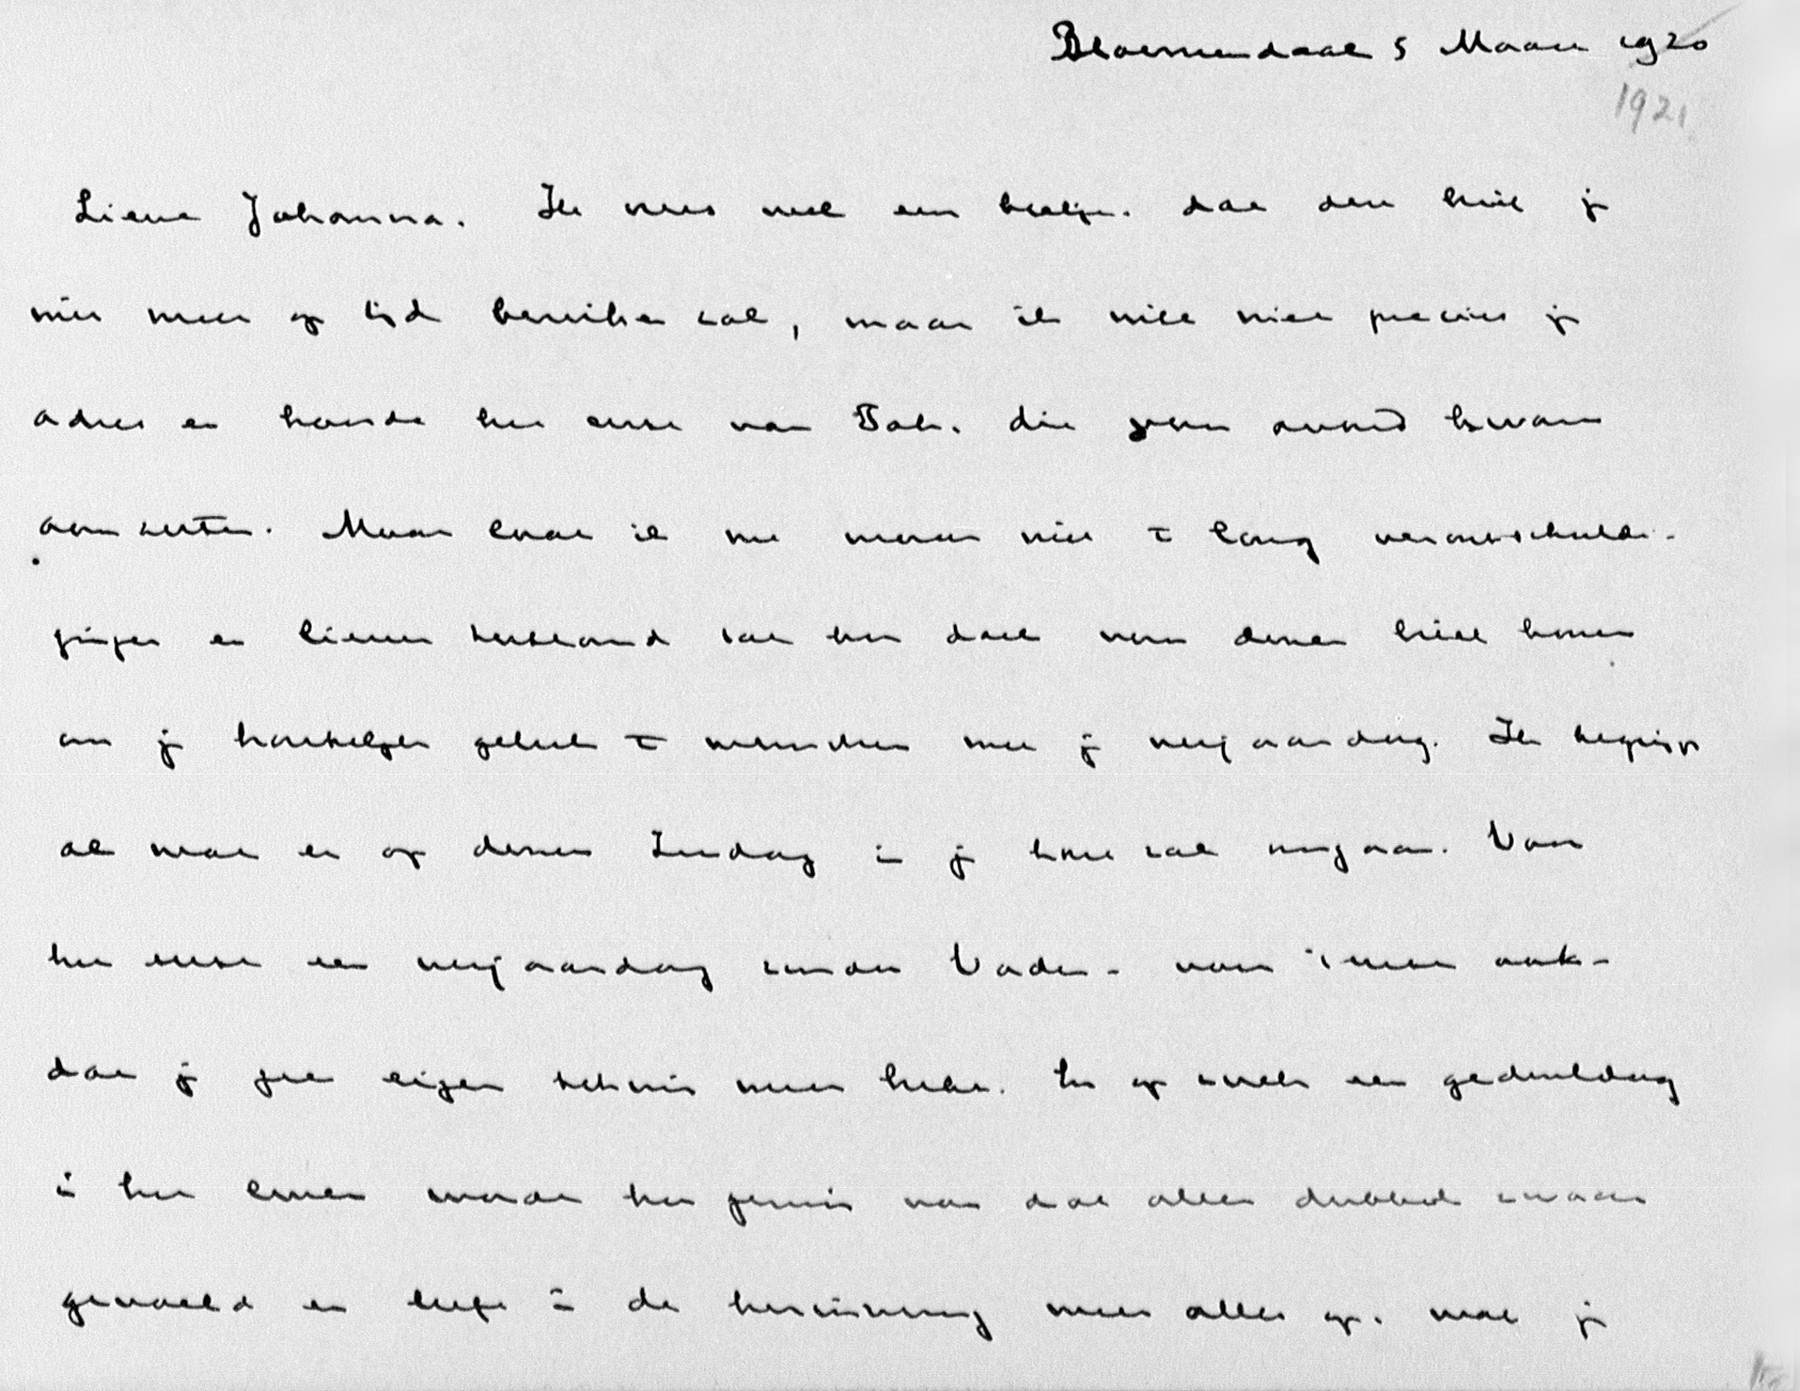 Bloemendaal 5 Maart 1920
1921
Lieve Johanna. Ik vrees wel een beetje. dat deze brief je
niet meer op tijd bereiken zal, maar ik wist niet precies je
adres en hoorde het eerst van Joh. die gister avond kwam
aan zetten. Maar laat ik me maar niet te lang verontschuldi-
gingen en liever zal het doel van dezen brief komen
om je hartelijk geluk te wenschen met je verjaardag. Ik begrijp
al wat er op dezen Zondag in je hart zal omgaan. Voor
het eerst een verjaardag zonder Vader - voor 't eerst ook -
dat je geen eigen tehuis meer hebt. En op zoo'n een gedenkdag
in het leven wordt het gemis van dat alles dubbel zwaar
gevoeld en leeft in de herinnering weer alles op. wat je